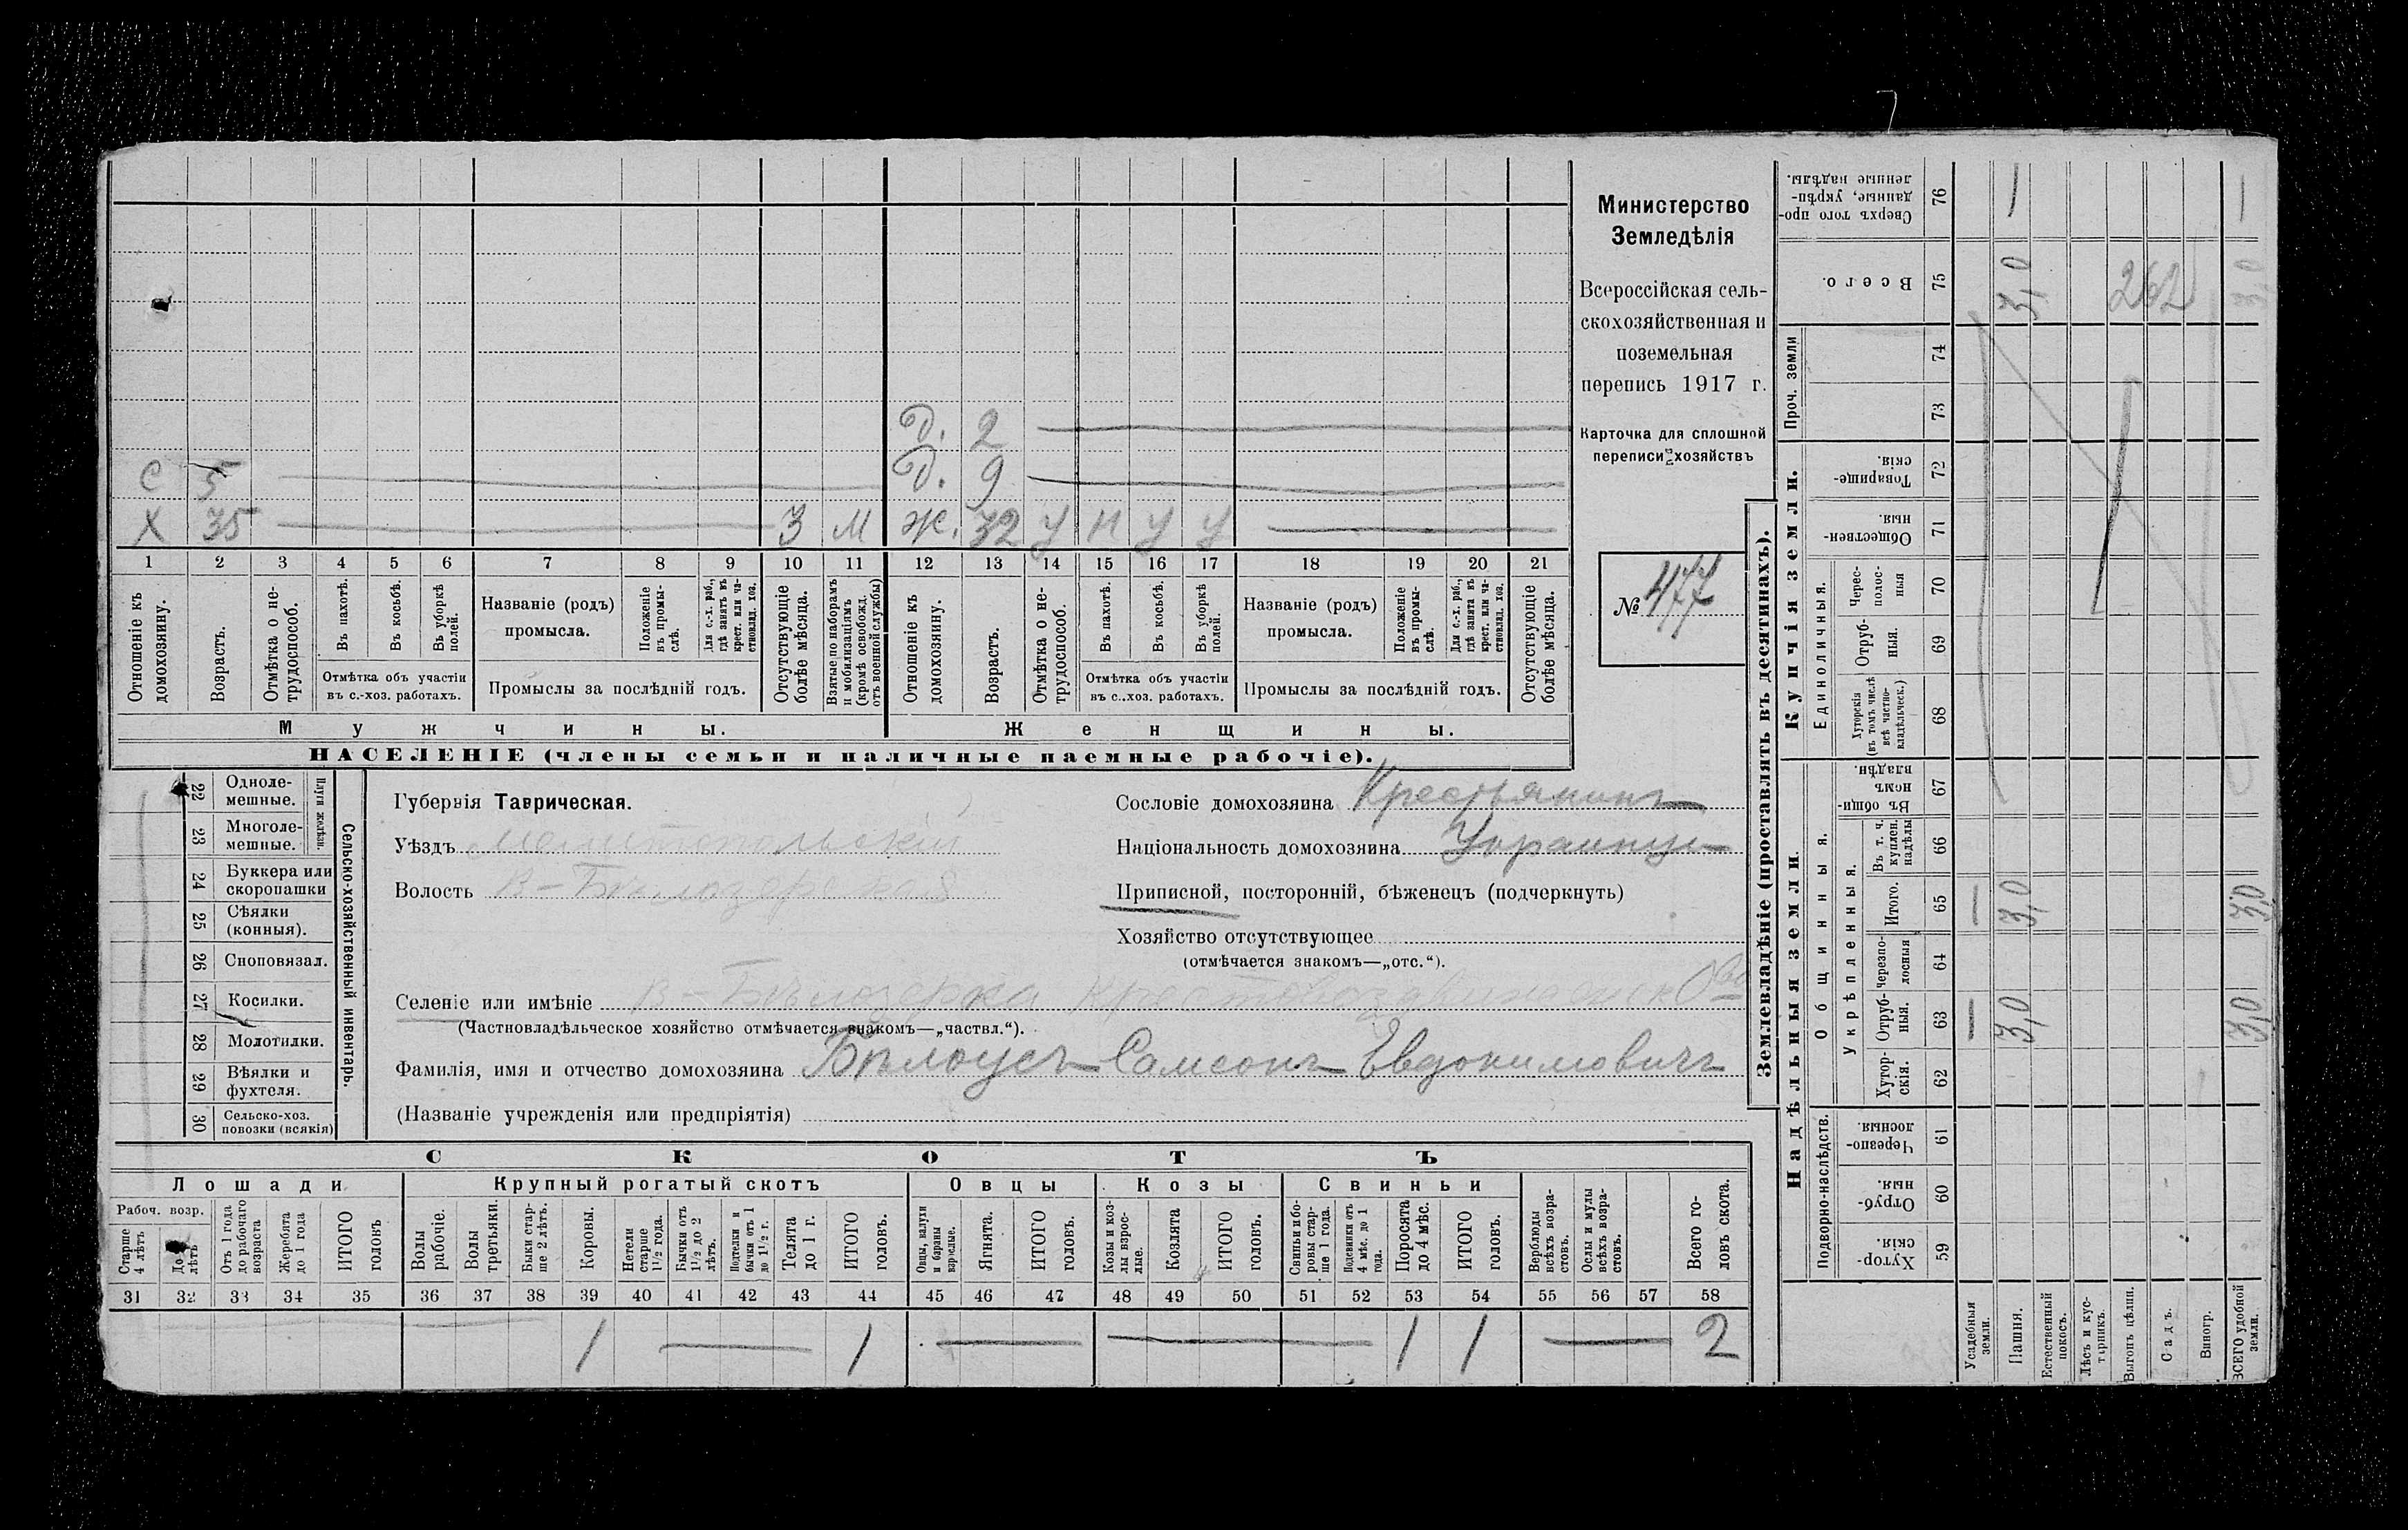 Министерство
Земледѣлія
Всероссійская сель-
скохозяйственная и
поземельная
перепись 1917 г.
Карточка для сплошной
переписи хозяйствъ
№ 477
Д. 2
С 5 Д. 9
Х 35 3 М Ж. 32 У Н У У
1 2 3 4 5 6 7 8 9 10 11 12 13 14 15 16 17 18 19 20 21
Отношеніе къ домохозяину.
Возрастъ.
Отмѣтка о не-трудоспособ.
Въ пахотѣ.
Въ косьбѣ.
Въ уборкѣ полей.
Отмѣтка объ участіи
въ с.-хоз. работахъ.
Названіе (родъ)
промысла.
Положеніе въ промы-слѣ.
Для с.-х. раб., гдѣ занятъ въ крест. или ча-стновлад. хоз.
Промыслы за послѣдній годъ.
Отсутствующіе болѣе мѣсяца.
Взятые по наборамъ и мобилизаціямъ (кромѣ освобожд. отъ военной службы)
Отношеніе къ домохозяину.
Возрастъ.
Отмѣтка о не-трудоспособ.
Въ пахотѣ.
Въ косьбѣ.
Въ уборкѣ полей.
Отмѣтка объ участіи
въ с.-хоз. работахъ.
Названіе (родъ)
промысла.
Положеніе въ промы-слѣ.
Для с.-х. раб., гдѣ занята въ крест. или ча-стновлад. хоз.
Промыслы за послѣдній годъ.
Отсутствующіе болѣе мѣсяца.
Мужчины. Женщины.
НАСЕЛЕНІЕ (члены семьи и наличные наемные рабочіе).
22 Одноле-мешные.
23 Многоле-мешные.
Плуги желѣзн.
24 Буккера или скоропашки
25 Сѣялки (конныя).
26 Сноповязал.
27 Косилки.
28 Молотилки.
29 Вѣялки и фухтеля.
30 Сельско-хоз. повозки (всякія)
Сельско-хозяйственный инвентарь.
Губернія Таврическая.
Уѣздъ Мелитопольскій
Волость В-Бѣлозерская
Сословіе домохозяина Крестьянинъ
Національность домохозяина Украинецъ
Приписной, посторонній, бѣженецъ (подчеркнуть)
Хозяйство отсутствующее
(отмѣчается знакомъ—„отс.“).
Селеніе или имѣніе В-Бѣлозерка
(Частновладѣльческое хозяйство отмѣчается знакомъ—„частвл.“).
Фамилія, имя и отчество домохозяина Бѣлоусъ Самсонъ Евдокимовичъ
(Названіе учрежденія или предпріятія)
СКОТЪ
Лошади Крупный рогатый скотъ Овцы Козы Свиньи
Рабоч. возр.
Старше 4 лѣтъ
До 4 лѣтъ
Отъ 1 года до рабочаго возраста
Жеребята до 1 года
ИТОГО головъ
Волы рабочіе.
Волы третьяки.
Быки стар-ше 2 лѣтъ.
Коровы.
Нетели старше 1½ года.
Бычки отъ 1½ до 2 лѣтъ.
Подтелки и бычки отъ 1 до 1½ г.
Телята до 1 г.
ИТОГО головъ.
Овцы, валухи и бараны взрослые.
Ягнята.
ИТОГО головъ.
Козы и коз-лы взрос-лые.
Козлята
ИТОГО головъ.
Свиньи и бо-ровы стар-ше 1 года.
Подсвинки отъ 4 мѣс. до 1 года.
Поросята до 4 мѣс.
ИТОГО головъ.
Верблюды всѣхъ возра-стовъ.
Ослы и мулы всѣхъ возра-стовъ.
Всего го-ловъ скота.
31 32 33 34 35 36 37 38 39 40 41 42 43 44 45 46 47 48 49 50 51 52 53 54 55 56 57 58
1 1 1 1 2
Землевладѣніе (проставлять въ десятинахъ).
Надѣльныя земли.
Купчія земли.
Проч. земли
Подворно-наслѣдств.
Общинныя.
Укрѣпленныя.
Единоличныя.
Сверхъ того про-данные, укрѣп-ленные надѣлы. 76 — —
Всего. 75 3,0 262 3,0
74
73
Товарище-скія. 72
Обществен-ныя. 71
Черес-полос-ныя 70
Отруб-ныя. 69
Хуторскія (въ томъ числѣ всѣ частно-владѣльческ.) 68
Въ общи-номъ владѣн. 67
Въ т. ч. куплен. надѣлы 66
Итого. 65 — 3,0 3,0
Черезпо-лосныя 64
Отруб-ныя. 63 — 3,0 3,0
Хутор-скія. 62
Черезпо-лосныя. 61
Отруб-ныя. 60
Хутор-скія. 59
Усадебныя земли.
Пашня.
Естественный покосъ.
Лѣсъ и кус-тарникъ.
Выгонъ цѣлин.
Садъ.
Виногр.
ВСЕГО удобной земли.